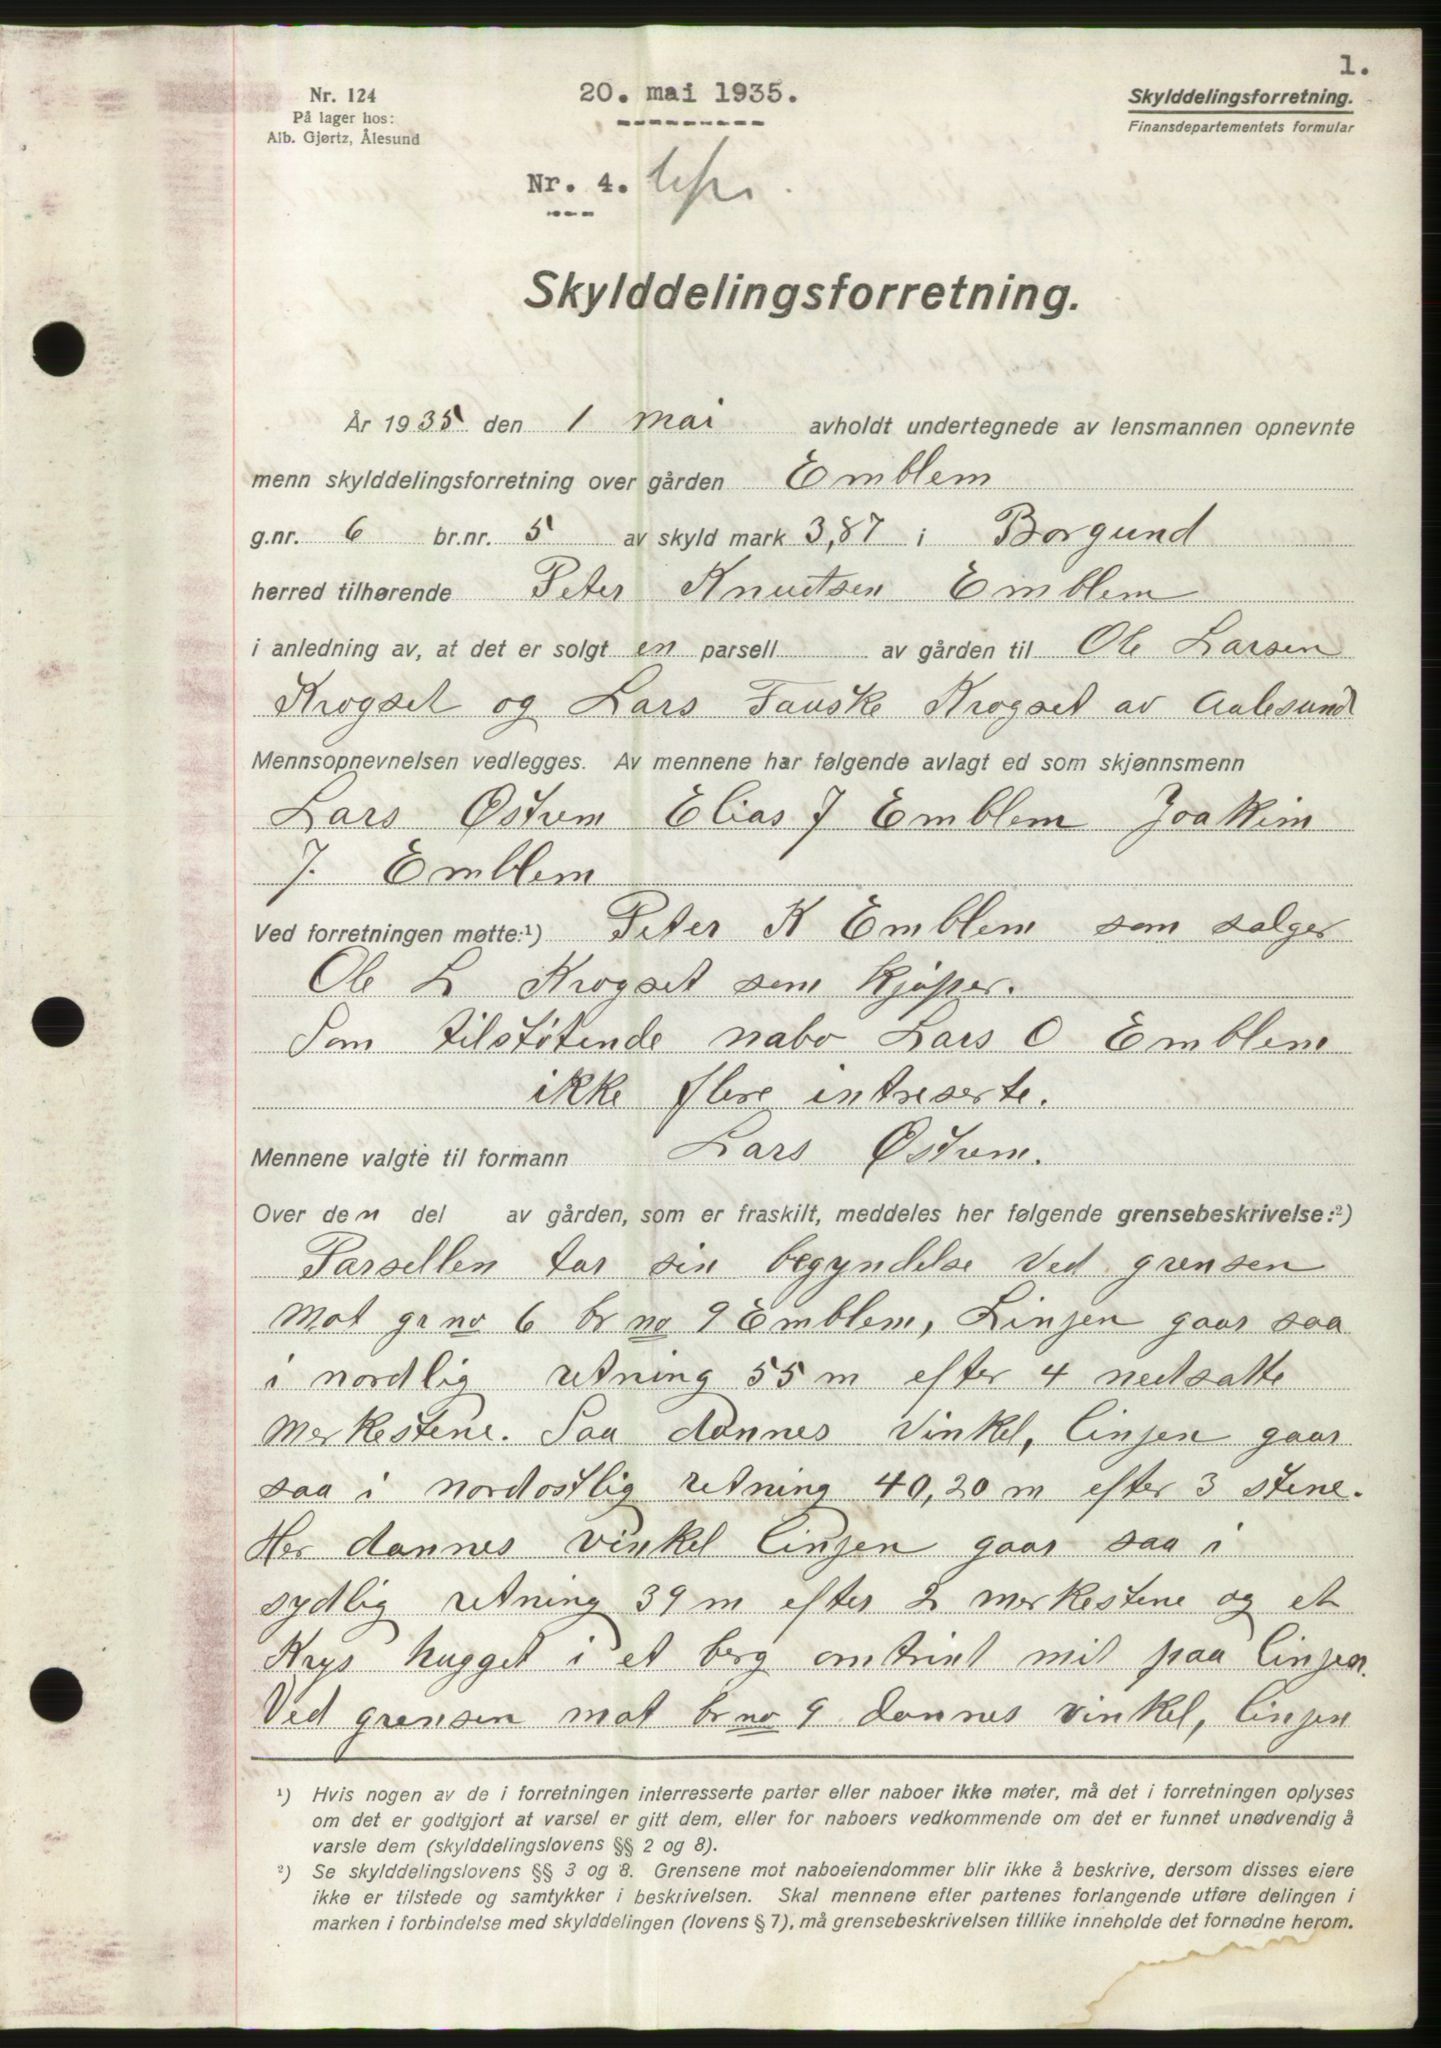 1.
Nr. 124
På lager hos:
Alb. Gjørtz, Ålesund
20. mai 1935.
Skylddelingsforretning.
Finansdepartementets formular
Nr. 4.
Skylddelingsforretning.
År 1935 den 1 mai avholdt undertegnede av lensmannen opnevnte
menn skylddelingsforretning over gården Emblem
g.nr. 6 br.nr. 5 av skyld mark 3,87 i Borgund
herred tilhørende Peter Knudtsen Emblem
i anledning av, at det er solgt en parsell av gården til Ole Larsen
Krogset og Lars Fauske Krogset av Aalesund
Mennsopnevnelsen vedlegges. Av mennene har følgende avlagt ed som skjønnsmenn
Lars Østrem Elias J Emblem Joakim
J. Emblem
Ved forretningen møtte:¹) Peter K Emblem som salger
Ole L Krogset som kjøper.
Som tilstøtende nabo Lars O Emblem
ikke flere intreserte.
Mennene valgte til formann Lars Østrem.
Over den del av gården, som er fraskilt, meddeles her følgende grensebeskrivelse:²)
Parsellen tar sin begyndelse ved grensen
mot gr no 6 br no 9 Emblem, Linjen gaar saa
i nordlig retning 55 m efter 4 nedsatte
merkestene. Saa dannes vinkel, linjen gaar
saa i nordostlig retning 40,20 m efter 3 stene.
Her dannes vinkel linjen gaar saa i
sydlig retning 39 m efter 2 merkestene og et
Krys hugget i et berg omtrint mit paa linjen.
Ved grensen mot br no 9 dannes vinkel, linjen
¹) Hvis nogen av de i forretningen interresserte parter eller naboer ikke møter, må det i forretningen oplyses
om det er godtgjort at varsel er gitt dem, eller for naboers vedkommende om det er funnet unødvendig å
varsle dem (skylddelingslovens §§ 2 og 8).
²) Se skylddelingslovens §§ 3 og 8. Grensene mot naboeiendommer blir ikke å beskrive, dersom disses eiere
ikke er tilstede og samtykker i beskrivelsen. Skal mennene efter partenes forlangende utføre delingen i
marken i forbindelse med skylddelingen (lovens § 7), må grensebeskrivelsen tillike inneholde det fornødne herom.